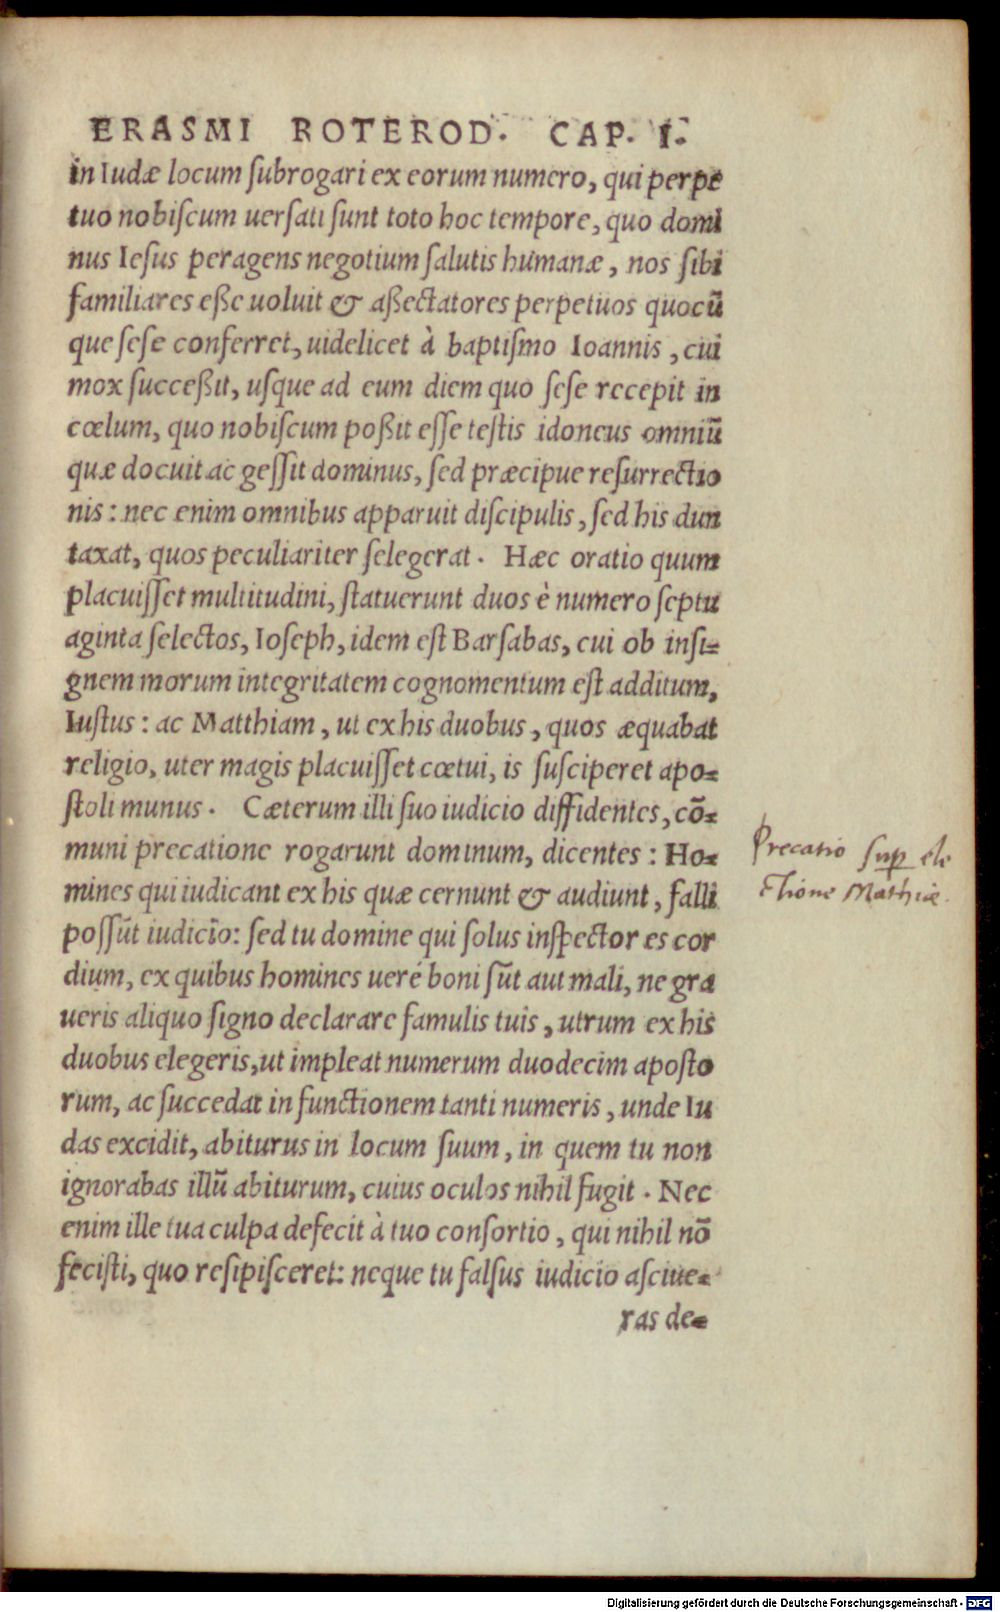 ERASMI ROTEROD. CAP. I.
in Iudæ locum ſubrogari ex eorum numero, qui perpe
tuo nobiſcum uerſati ſunt toto hoc tempore, quo domi
nus Ieſus peragens negotium ſalutis humanæ, nos ſibi
familiares eße uoluit & aßectatores perpetuos quocũ
que ſeſe conferret, uidelicet à baptiſmo Ioannis, cui
mox succeßit, uſque ad eum diem quo ſeſe recepit in
cœlum, quo nobiſcum poßit eſſe teſtis idoneus omniũ
quæ docuit ac geſſit dominus, ſed præcipue reſurrectio
nis: nec enim omnibus apparuit diſcipulis, ſed his dun
taxat, quos peculiariter ſelegerat. Hæc oratio quum
placuiſſet multitudini, ſtatuerunt duos è numero ſeptu
aginta ſelectos, Ioſeph, idem eſt Barſabas, cui ob inſi-
gnem morum integritatem cognomentum eſt additum,
Iuſtus: ac Matthiam, ut ex his duobus, quos æquabat
religio, uter magis placuiſſet cœtui, is ſuſciperet apo-
ſtoli munus. Cæterum illi ſuo iudicio diffidentes, cõ-
muni precatione rogarunt dominum, dicentes: Ho-
mines qui iudicant ex his quæ cernunt & audiunt, falli
poſſũt iudicio: ſed tu domine qui ſolus inſpector es cor
dium, ex quibus homines ueré boni ſũt aut mali, ne gra
ueris aliquo ſigno declarare famulis tuis, utrum ex his
duobus elegeris, ut impleat numerum duodecim apoſto
rum, ac ſuccedat in functionem tanti numeris, unde Iu
das excidit, abiturus in locum ſuum, in quem tu non
ignorabas illũ abiturum, cuius oculos nihil fugit. Nec
enim ille tua culpa defecit à tuo conſortio, qui nihil nõ
feciſti, quo reſipiſceret: neque tu falſus iudicio aſciue-
ras de-
Precatio sup ele
ctione Mathie.
Digitalisierung gefördert durch die Deutsche Forschungsgemeinschaft - DFG